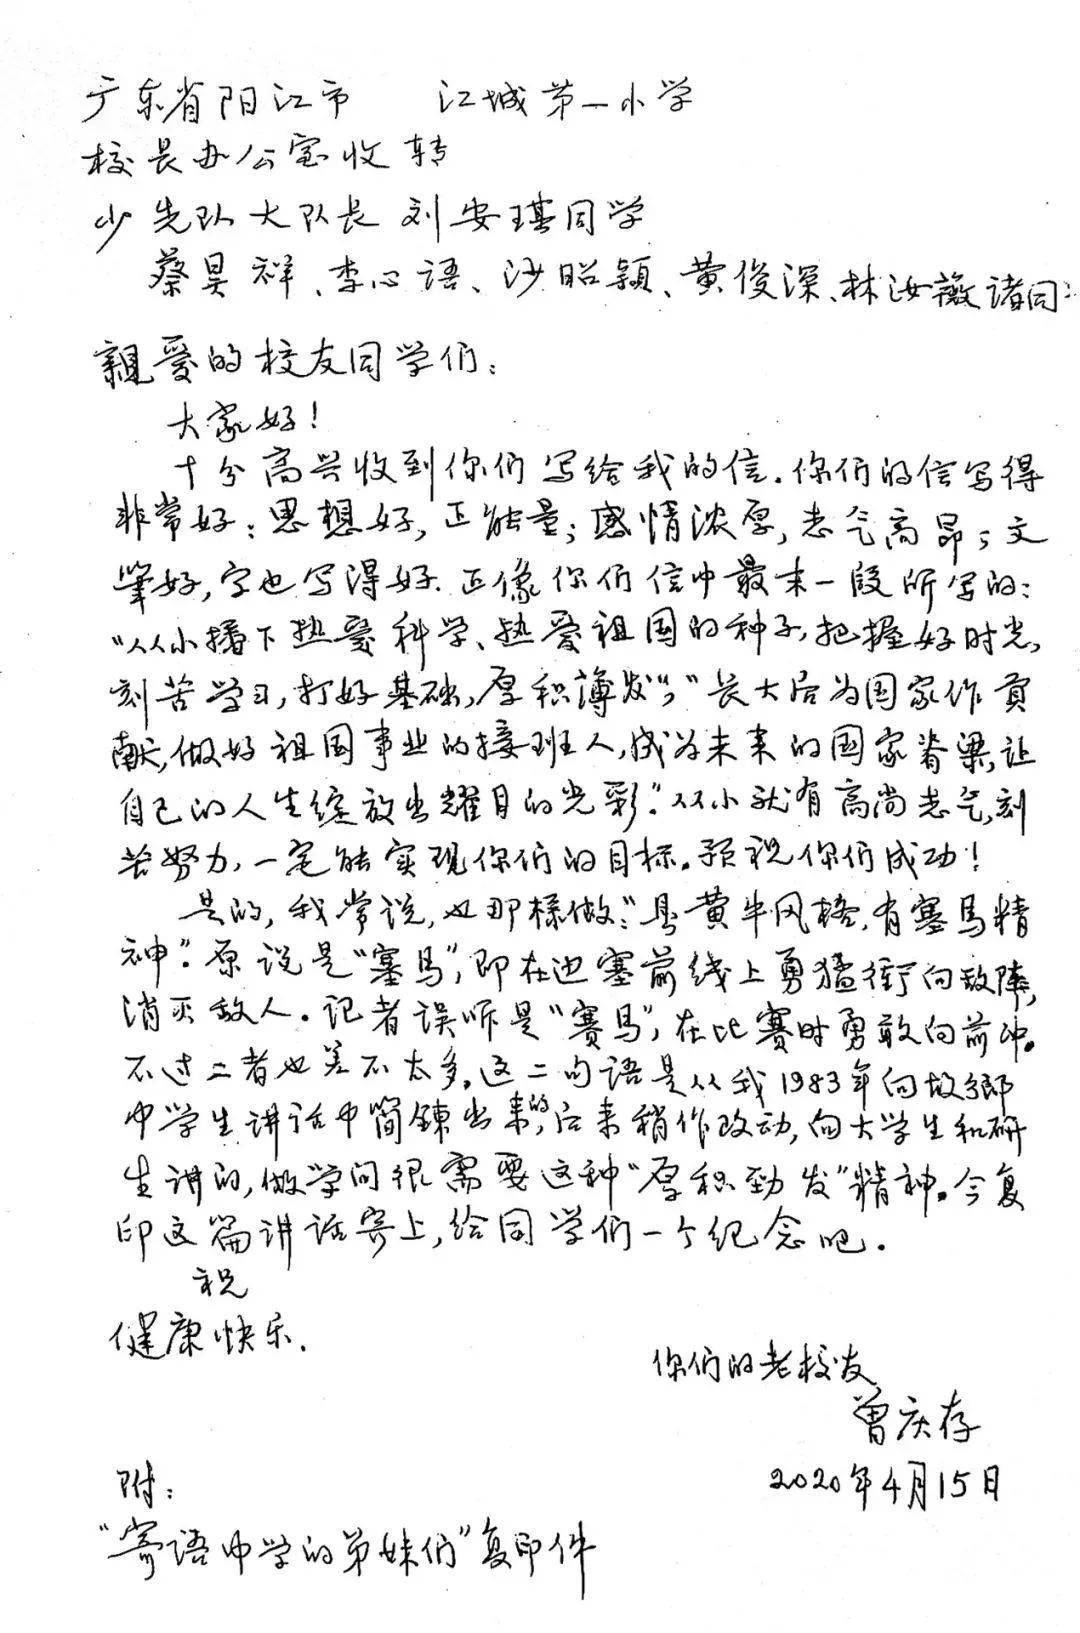 广东省阳江市 江城第一小学
校长办公室收转
少先队大队长刘安琪同学
蔡昊祥、李心语、沙昭颖、黄俊深、林汝薇诸同:
親爱的校友同学们:
大家好!
十分高兴收到你们写给我的信.你们的信写得
非常好:思想好,正能量;感情浓厚,志气高昂;文
笔好,字也写得好.正像你们信中最末一段所写的:
“从小播下热爱科学、热爱祖国的种子,把握好时光,
刻苦学习,打好基础,厚积薄发”,“长大后为国家作贡
献,做好祖国事业的接班人,成为未来的国家脊梁,让
自己的人生绽放出耀目的光彩”.从小就有高尚志气,刻
苦努力,一定能实现你们的目标。预祝你们成功!
是的,我常说,也那樣做:“具黄牛风格,有塞马精
神”.原说是“塞马”,即在边塞前线上勇猛衝向敌陣,
消灭敌人.记者误听是“赛马”,在比赛时勇敢向前冲。
不过二者也差不太多。这二句语是从我1983年向故鄉
中学生讲话中简鍊出来的,后来稍作改动,向大学生和研
生讲的,做学问很需要这种“厚积劲发”精神。今复
印这篇讲话寄上,给同学们一个纪念吧.
祝
健康快乐.
你们的老校友
曾庆存
2020年4月15日
附:
“寄语中学的弟妹们”复印件